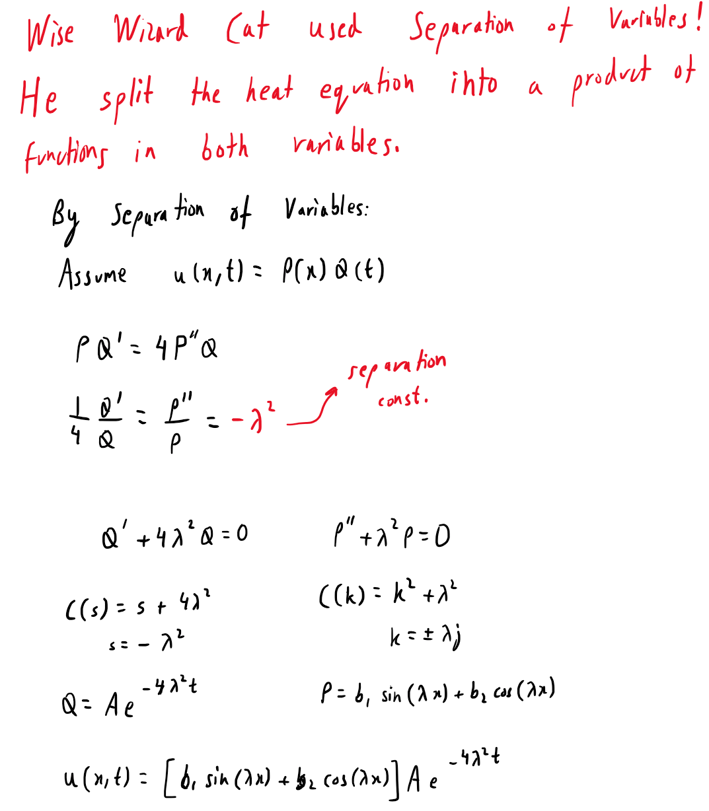 Wise Wizard Cat used Separation of Variables!
He split the heat equation into a product of
functions in both variables.
By Separation of Variables:
Assume u(x,t) = P(x) Q(t)
P Q' = 4 P'' Q
1/4 Q'/Q = P''/P = -λ² → separation const.
Q' + 4λ² Q = 0
P'' + λ² P = 0
C(s) = s + 4λ²
C(k) = k² + λ²
s = - λ²
k = ± λj
Q = A e^{-4λ²t}
P = b₁ sin(λx) + b₂ cos(λx)
u(x,t) = [b₁ sin(λx) + b₂ cos(λx)] A e^{-4λ²t}